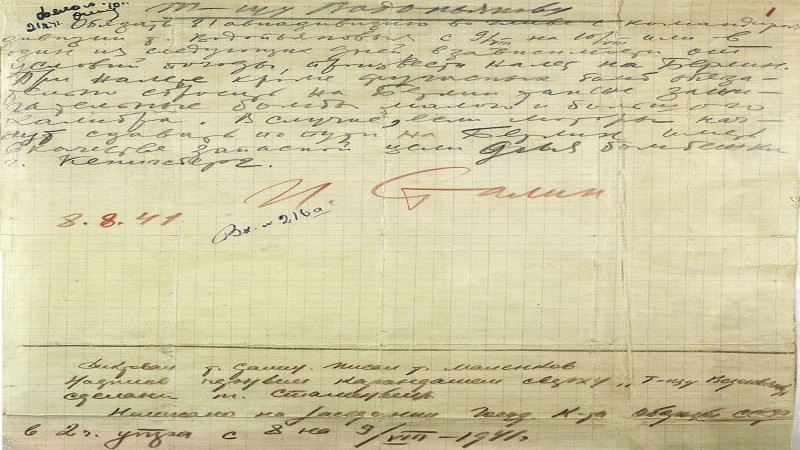 Т-щу Водопьянову
1
Обязать 81 авиадивизию во главе с командиром
дивизии т. Водопьяновым с 9/VIII на 10/VIII или в
один из следующих дней в зависимости от
условий погоды, произвести налет на Берлин.
При налете кроме фугасных бомб обяза-
тельно сбросить на Берлин также зажи-
гательные бомбы малого и большого
калибра. В случае, если моторы нач-
нут сдавать по пути на Берлин иметь
в качестве запасной цели для бомбежки
г. Кенигсберг.
И. Сталин
8.8.41
Вх. № 216
Диктовал т. Сталин. писал т. Маленков
Надпись первым карандашем сверху „Т-щу Водопьянову
сделана т. Сталиным
Написано на заседании Госуд. К-та обороны СССР
в 2 ч. утра с 8 на 9/VIII-1941г